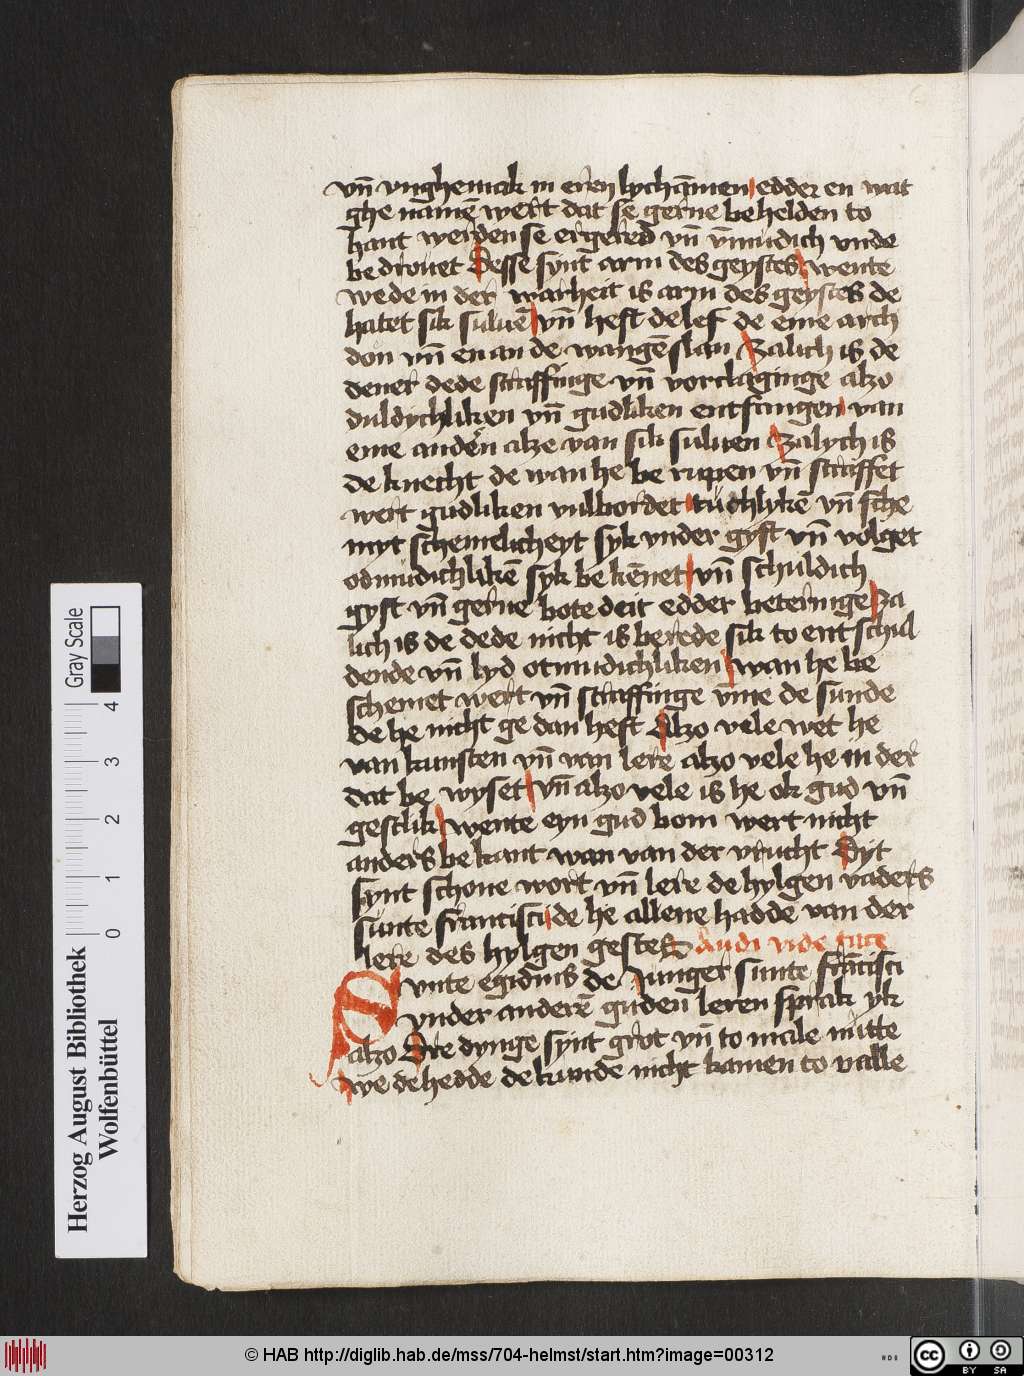 vn̄ vnghemak in eren lychāmen edder en wat
ghe namē wert dat se gerne behelden to
hant werden se ergered vn̄ vnmudich vnde
bedrouet Desse synt arm des geystes wente
wede in der warheit is arm des geystes de
hatet sik suluē vn̄ heft de lef de eme arch
dön vn̄ en an de wangē slan Zalich is de
dener dede straffinge vn̄ vorclaginge alzo
duldychliken vn̄ gudliken entfangen van
eme andern alze van sik suluen Zalych is
de knecht de wan he be rupen vn̄ straffet
wert gudliken vulbordet tuchlykē vn̄ sche
myt schemelicheyt syk vnder gyft vn̄ volget
odmudichlikē syk be kēnet vn̄ schuldich
gyft vn̄ gerne bote deit edder beteringe Za
lich is de dede nicht is berede sik to ent schul
dende vn̄ lyd otmudichliken wan he be
schemet wert vn̄ straffinge vm̄e de sunde
de he nicht ge dan heft Alzo vele wet he
van kunsten vn̄ van lere alzo vele he in der
dat be wyset vn̄ alzo vele is he ok gud vn̄
gestlik wente eyn gud bom wert nicht
anders be kant wan van der vrucht Dyt
synt schone wort vn̄ lere de hylgen vaders
sunte francisci de he allene hadde van der
lere des hylgen gestes Audi vide tace
Sunte egidius de Junger sunte frācisci
vnder anderē guden leren sprak yk
alzo Dre dynge synt grot vn̄ to male nutte
we de hedde de kunde nicht kamen to valle
Herzog August Bibliothek
Wolfenbüttel
0 1 2 3 4
Gray Scale
© HAB http://diglib.hab.de/mss/704-helmst/start.htm?image=00312
HAB
cc BY SA